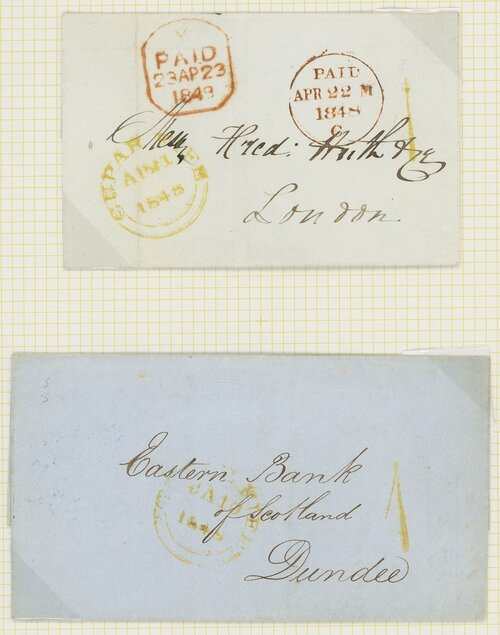 PAID
23AP23
1848
PAID
APR 22 M
1848
C
1
CUPAR
1848
Messrs Fred: Huth & Co
London
Eastern Bank
of Scotland
Dundee
JA
184
1